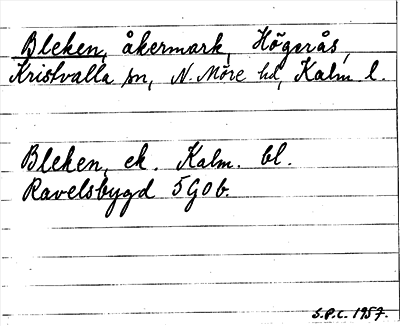 Bleken, åkermark, Högerås,
Kristvalla sn, N. Möre hd, Kalm l.
Bleken, ek. Kalm. bl.
Ravelsbygd 5G0b.
S.P.C. 1957.